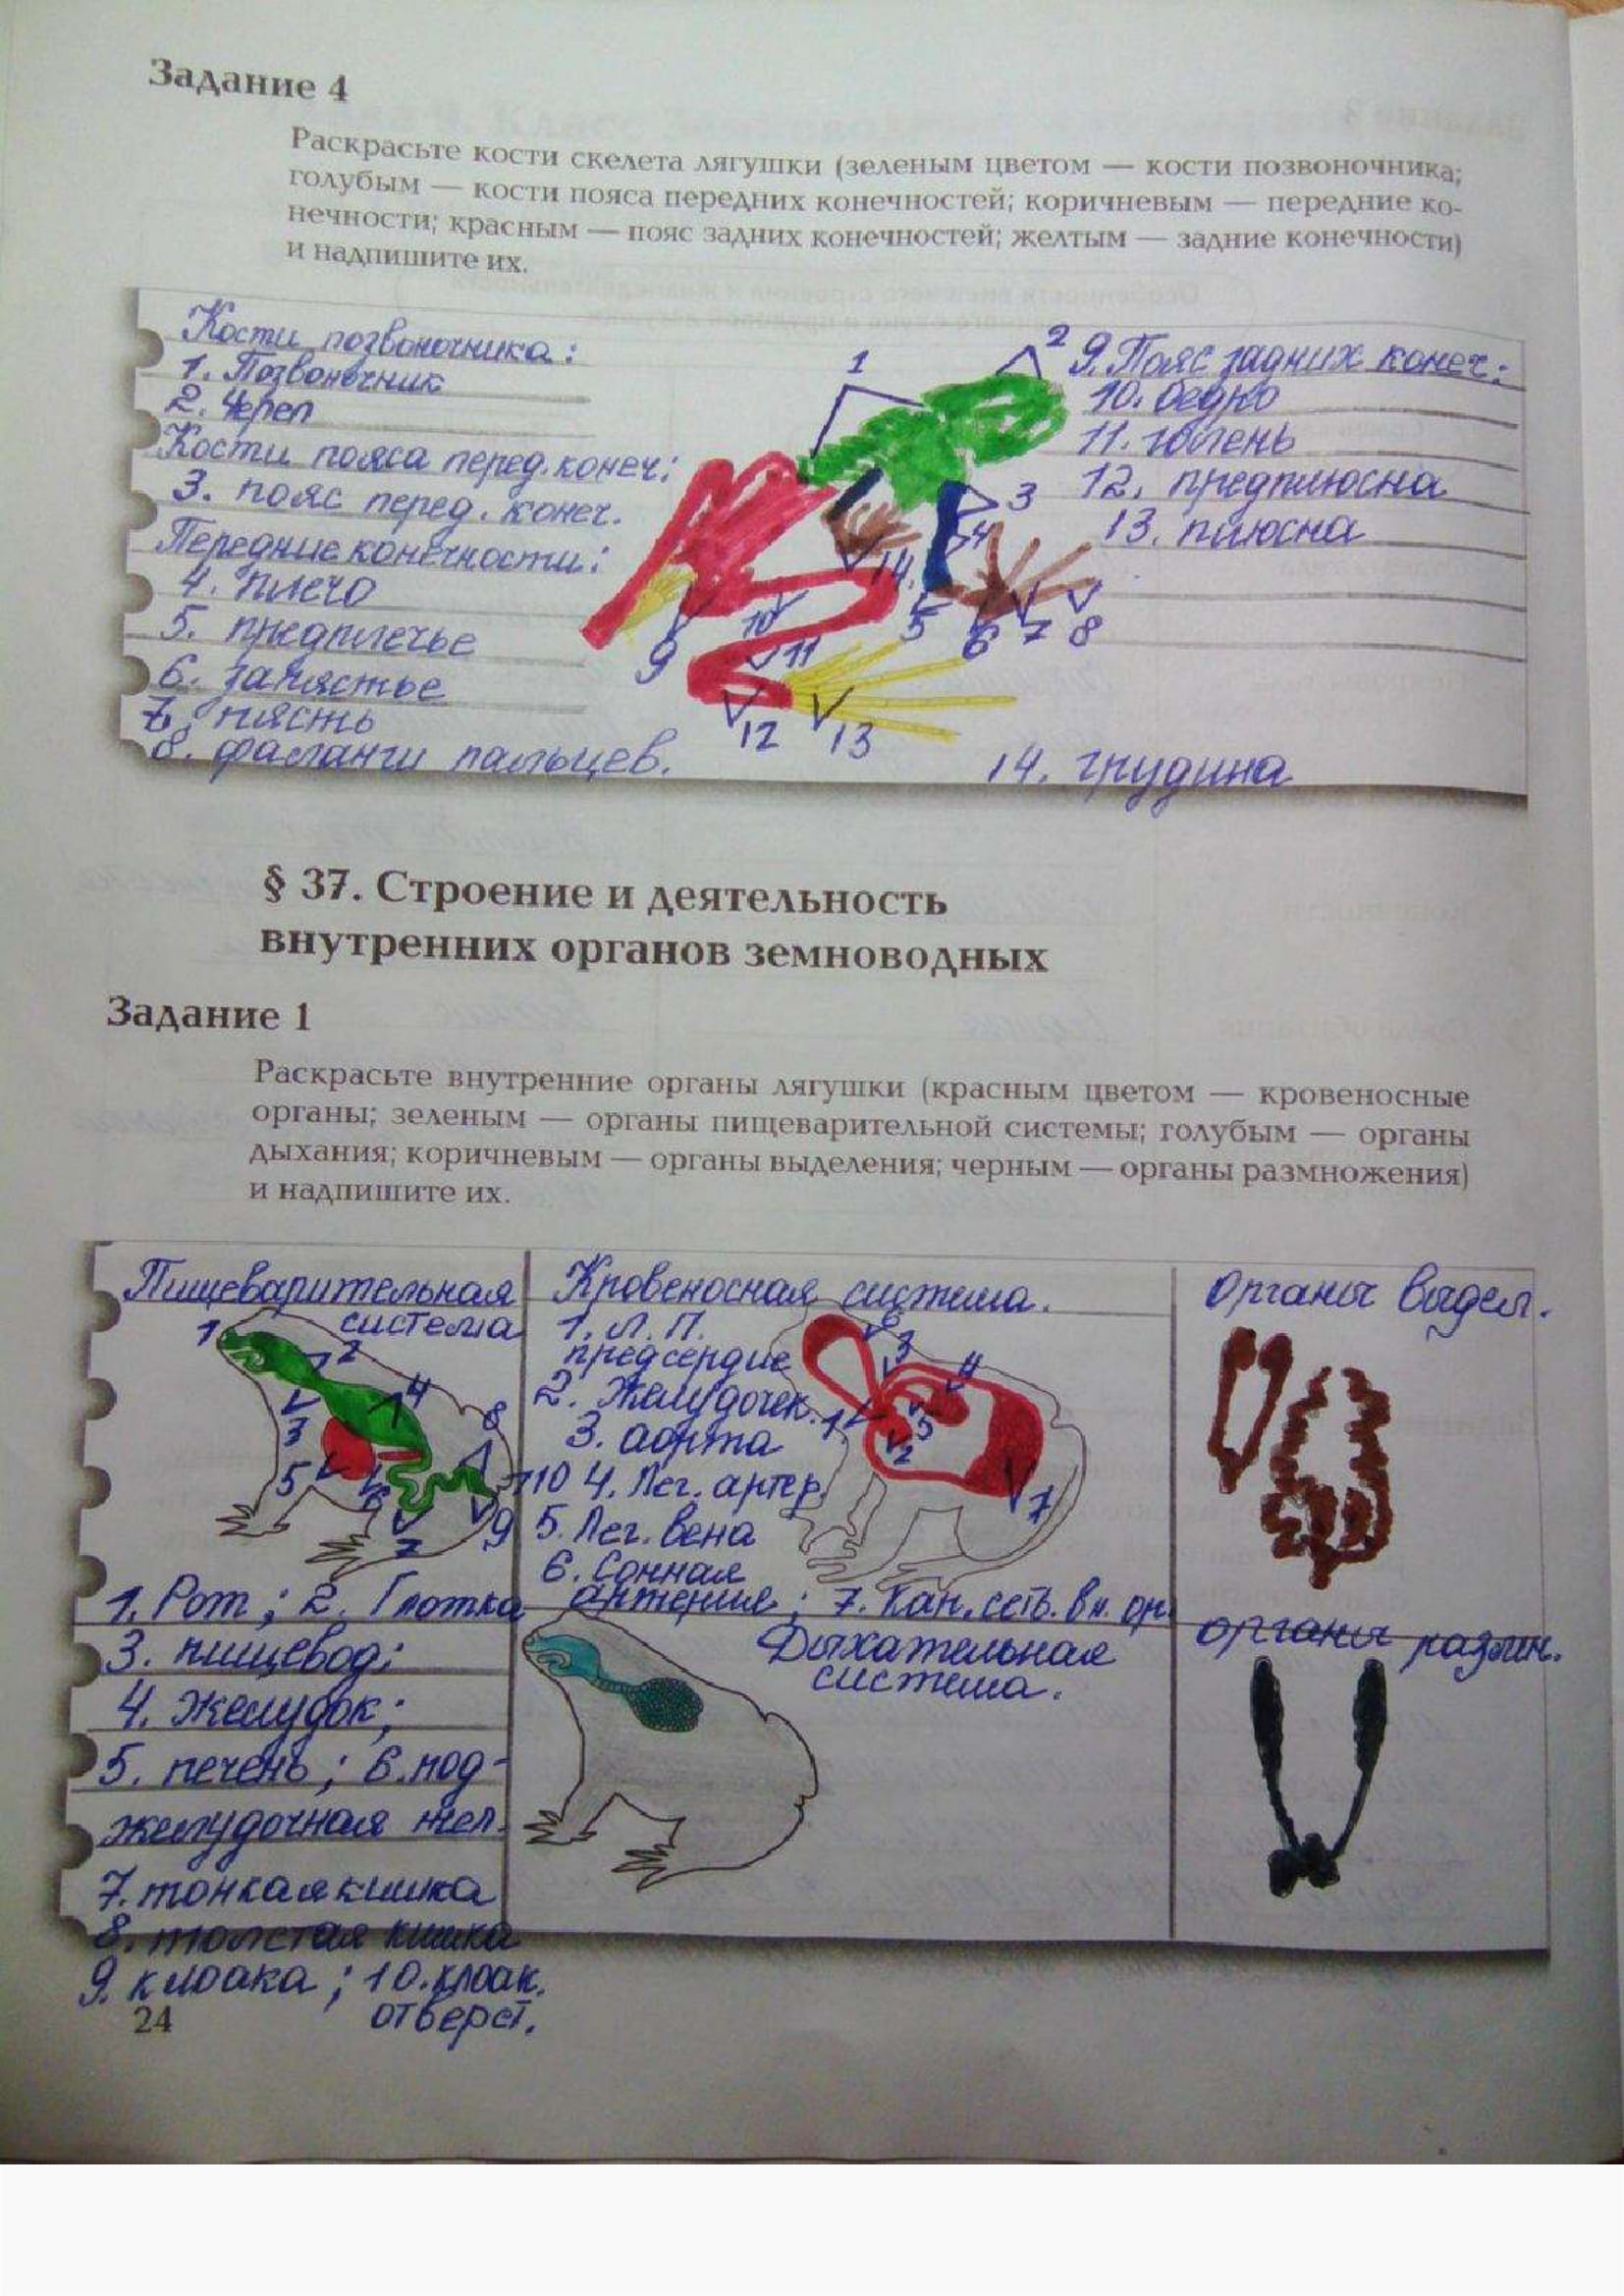 Задание 4
Раскрасьте кости скелета лягушки (зеленым цветом — кости позвоночника;
голубым — кости пояса передних конечностей; коричневым — передние ко-
нечности; красным — пояс задних конечностей; желтым — задние конечности)
и надпишите их.
Кости позвоночника:
1. Позвоночник
2. Череп
Кости пояса перед. конеч:
3. пояс перед. конеч.
Передние конечности:
4. плечо
5. предплечье
6. запястье
7. пясть
8. фаланги пальцев.
1
2
3
4
14.
5
6
7
8
9
10
11
12
13
9. Пояс задних конеч:
10. бедро
11. голень
12. предплюсна
13. плюсна
14. грудина
§ 37. Строение и деятельность
внутренних органов земноводных
Задание 1
Раскрасьте внутренние органы лягушки (красным цветом — кровеносные
органы; зеленым — органы пищеварительной системы; голубым — органы
дыхания; коричневым — органы выделения; черным — органы размножения)
и надпишите их.
Пищеварительная
система
1
2
3
4
5
6
7
8
9
10
1. Рот; 2. Глотка
3. пищевод;
4. Желудок;
5. печень; 6. под-
желудочная жел.
7. тонкая кишка
8. толстая кишка
9. клоака; 10. клоак.
отверст.
Кровеносная система.
1. Л. П.
предсердие
2. Желудочек.
3. аорта
4. Лег. артер.
5. Лег. вена
6. Сонная
артерия; 7. Кап. сеть. вн. ор.
6
3
4
1
5
2
7
Дыхательная
система.
Органы выдел.
органы размн.
24